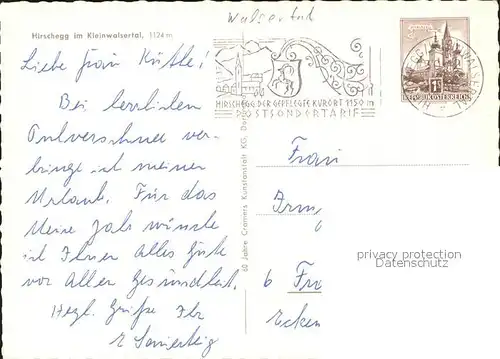 Walsertal
Hirschegg im Kleinwalsertal, 1124 m
Liebe Frau Küstle!
Bei herrlichem
Pulverschnee ver-
bringe ich meinen
Urlaub. Für das
Neue Jahr wünsche
ich Ihnen alles Gute
vor allem Gesundheit.
Herzl. Grüße Ihr
HIRSCHEGG DER GEPFLEGTE KURORT 1150 m
POSTSONDERTARIF
REPUBLIK ÖSTERREICH
60 Jahre Cramers Kunstanstalt KG, Do
Frau
Irmg
6 Fra
Ecken
privacy protection
Datenschutz